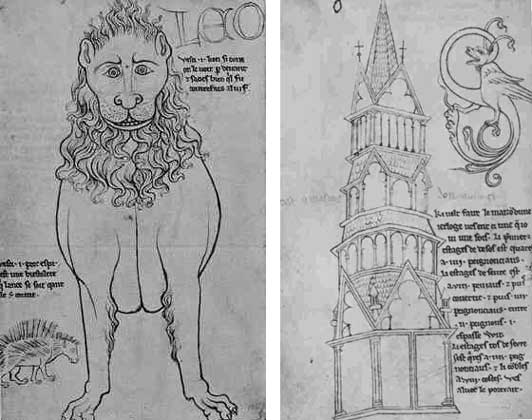 LEO
Vesci · i · lion si com
on le voit p devant
& sacies bien ql fu
contrefais al vif ·
Vesci · i · porc espi ·
cest une biestelete
lance se soie qant
ele
Ki velt faire le maizon dune
ierloge vesent ci une q io
vi une fois · li premiers
estages de desos est quares
a · iiii · peignonciaus ·
li estages deseure est
a · viii · peniaus · & puis
covertic · & puis · iiii ·
peignonciaus · entre
· ii · peignons · i ·
espasse wit ·
li estages tos deseure
sest qres a · iiii · peig
nonciaus · & li cobles
a · viii · costes · Ves
aluec le portrait ·